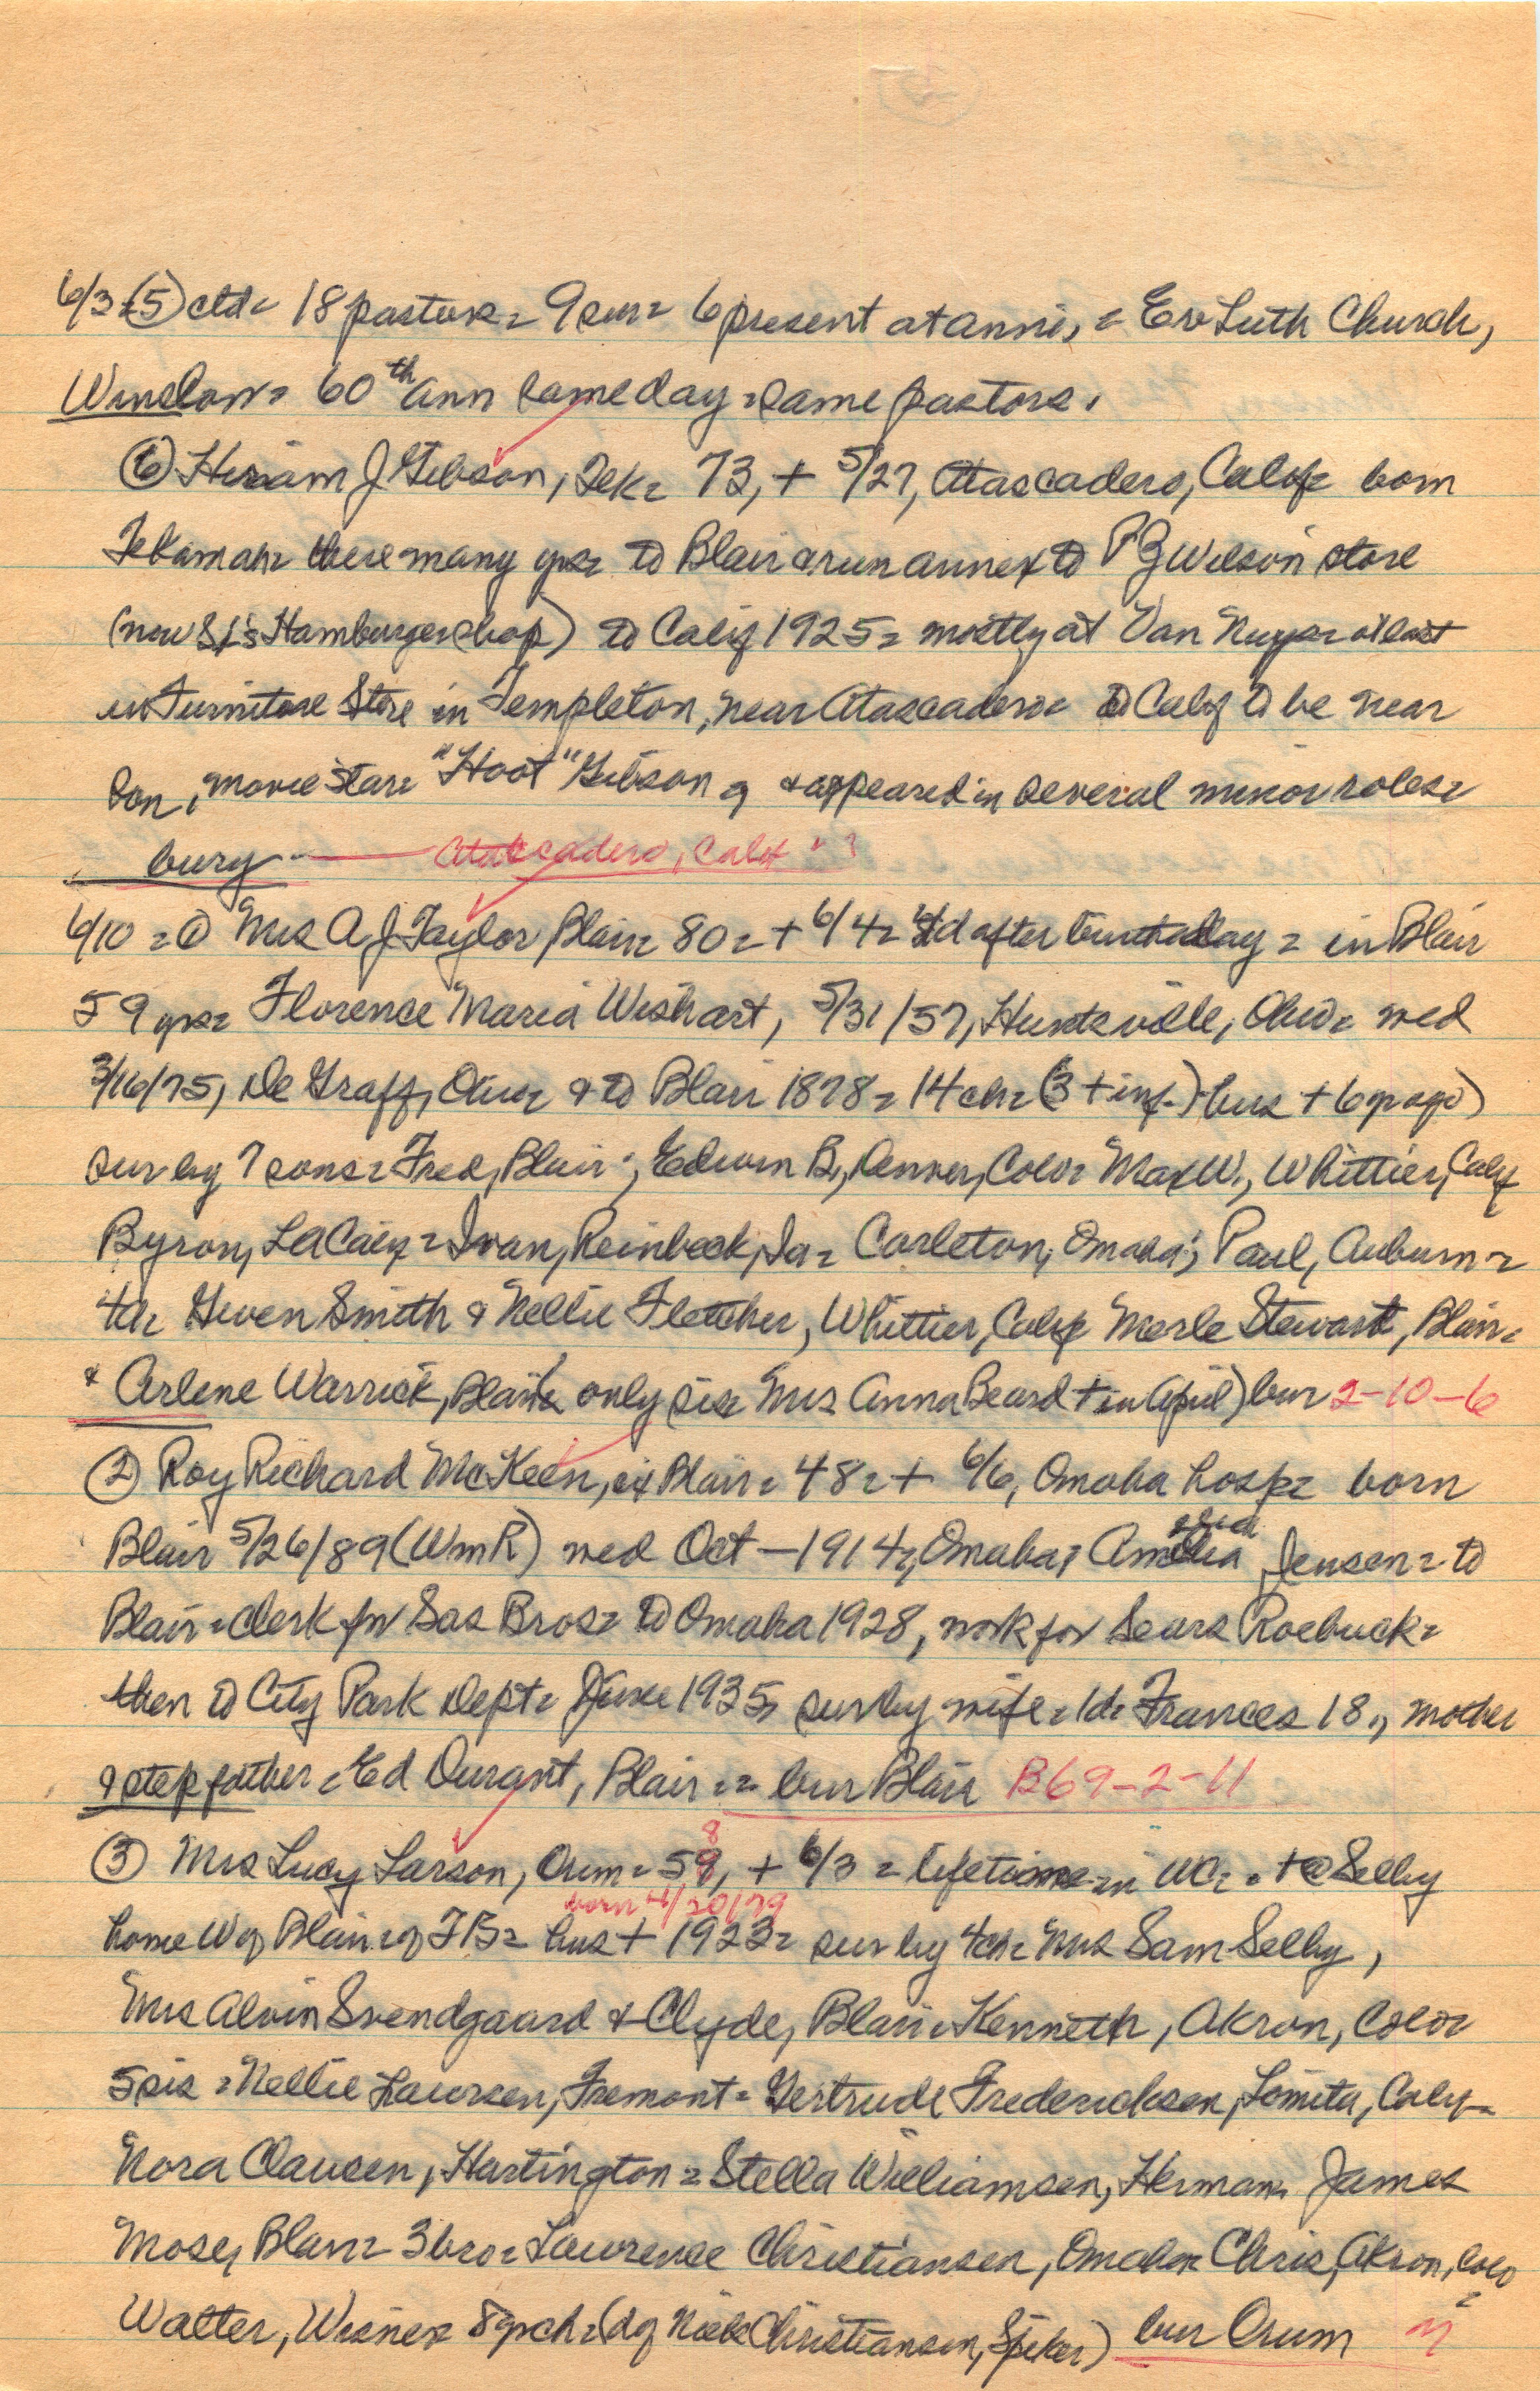 6/3 = (5) ctd = 18 pastors = 9 sur = 6 present at anni, = Ev Luth Church,
Winslow = 60th ann same day = same pastors.
(6) Hiram J Gibson, Tek = 73, + 5/27, Atascadero, Calif = born
Tekamah = there many yrs = to Blair & run annex to P Z Wilson store
(now St's Hamburger shop) to Calif 1925 = mostly at Van Nuys = at last
in Furniture Store in Templeton, near Atascadero = to Calif to be near
son, movie star = "Hoot" Gibson & appeared in several minor roles =
bury — Atascadero, Calif ?
6/10 = (1) Mrs A J Taylor, Blair = 80 = + 6/4 = 4d after birthday = in Blair
59 yrs = Florence Maria Wishart, 5/31/57, Huntsville, Ohio = wed
3/16/75, De Graff, Ohio & to Blair 1878 = 14 ch = (3 + inf.) hus + 6 yr ago)
sur by 7 sons = Fred, Blair; Edwin B, Denver, Colo = Max W., Whittier, Calif
Byron, LaCalif = Ivan, Reinbeck, Ia = Carleton, Omaha; Paul, Auburn =
4d = Gwen Smith & Nellie Fletcher, Whittier, Calif Merle Stewart, Blair =
& Arlene Warrick, Blair = only sis = Mrs Anna Beard + in April) bur 2-10-6
(2) Roy Richard McKeen, ex Blair = 48 = + 6/6, Omaha hosp = born
Blair 5/26/89 (Wm R) wed Oct — 1914, Omaha, Jensen = to
Blair = clerk for Sas Bros = to Omaha 1928, work for Sears Roebuck =
then to City Park Dept = June 1935, sur by wife = 1d = Frances 18., mother
& step father = Ed Durant, Blair = = bur Blair B69-2-11
(3) Mrs Lucy Larson, Orum = 59, 8 + 6/3 = lifetime in WC = + @ Selby
born 4/20/79
home W of Blair = of TB = hus + 1923 = sur by 4ch = Mrs Sam Selby,
Mrs Alvin Svendgaard & Clyde, Blair = Kenneth, Akron, Colo =
5 sis = Nellie Laursen, Fremont = Gertrude Fredericksen, Lomita, Calif =
Nora Clausen, Hartington = Stella Williamsen, Herman = James
Mosey, Blair = 3 bro = Lawrence Christiansen, Omaha = Chris, Akron, Colo =
Walter, Wisner = 8 grch = (d of Nick Christiansen, Spiker) bur Orum